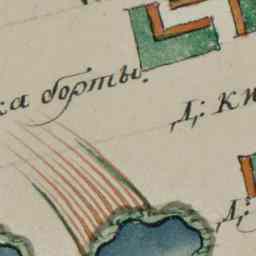 ка борты.
Д: Кн
Д: